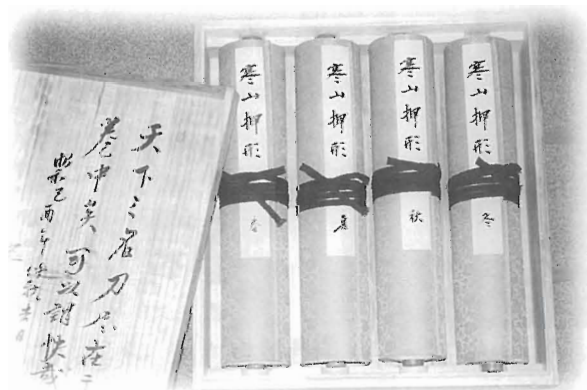 天下之名刀尽在
巻中矣可以謂快哉
昭和己酉年
寒山押形
春
寒山押形
夏
寒山押形
秋
寒山押形
冬